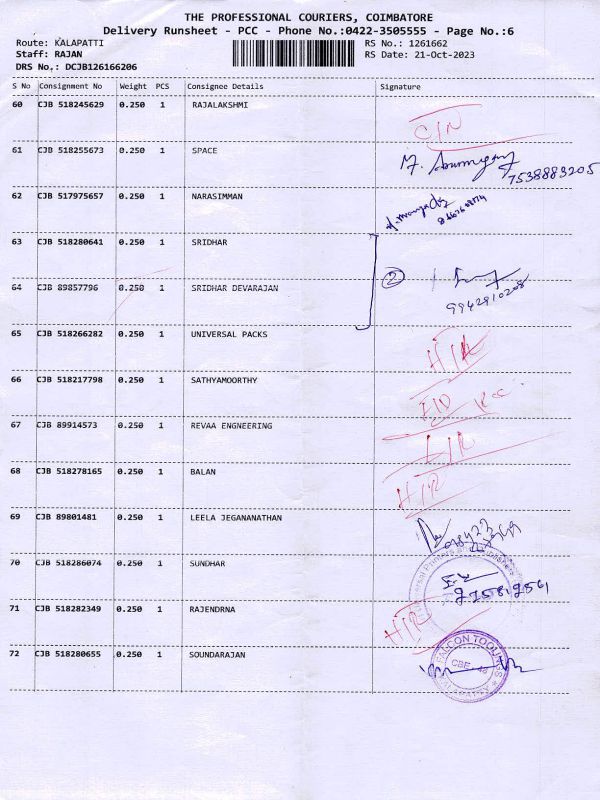 THE PROFESSIONAL COURIERS, COIMBATORE
Delivery Runsheet - PCC - Phone No.:0422-3505555 - Page No.:6
Route: KALAPATTI
Staff: RAJAN
DRS No.: DCJB126166206
RS No.: 1261662
RS Date: 21-Oct-2023
S No Consignment No Weight PCS Consignee Details Signature
60 CJB 518245629 0.250 1 RAJALAKSHMI
61 CJB 518255673 0.250 1 SPACE 7538883205
62 CJB 517975657 0.250 1 NARASIMMAN
63 CJB 518280641 0.250 1 SRIDHAR
64 CJB 89857796 0.250 1 SRIDHAR DEVARAJAN 2 9942910208
65 CJB 518266282 0.250 1 UNIVERSAL PACKS
66 CJB 518217798 0.250 1 SATHYAMOORTHY
67 CJB 89914573 0.250 1 REVAA ENGNEERING
68 CJB 518278165 0.250 1 BALAN
69 CJB 89801481 0.250 1 LEELA JEGANANATHAN
70 CJB 518286074 0.250 1 SUNDHAR
71 CJB 518282349 0.250 1 RAJENDRNA
72 CJB 518280655 0.250 1 SOUNDARAJAN FALCON TOOLINGS